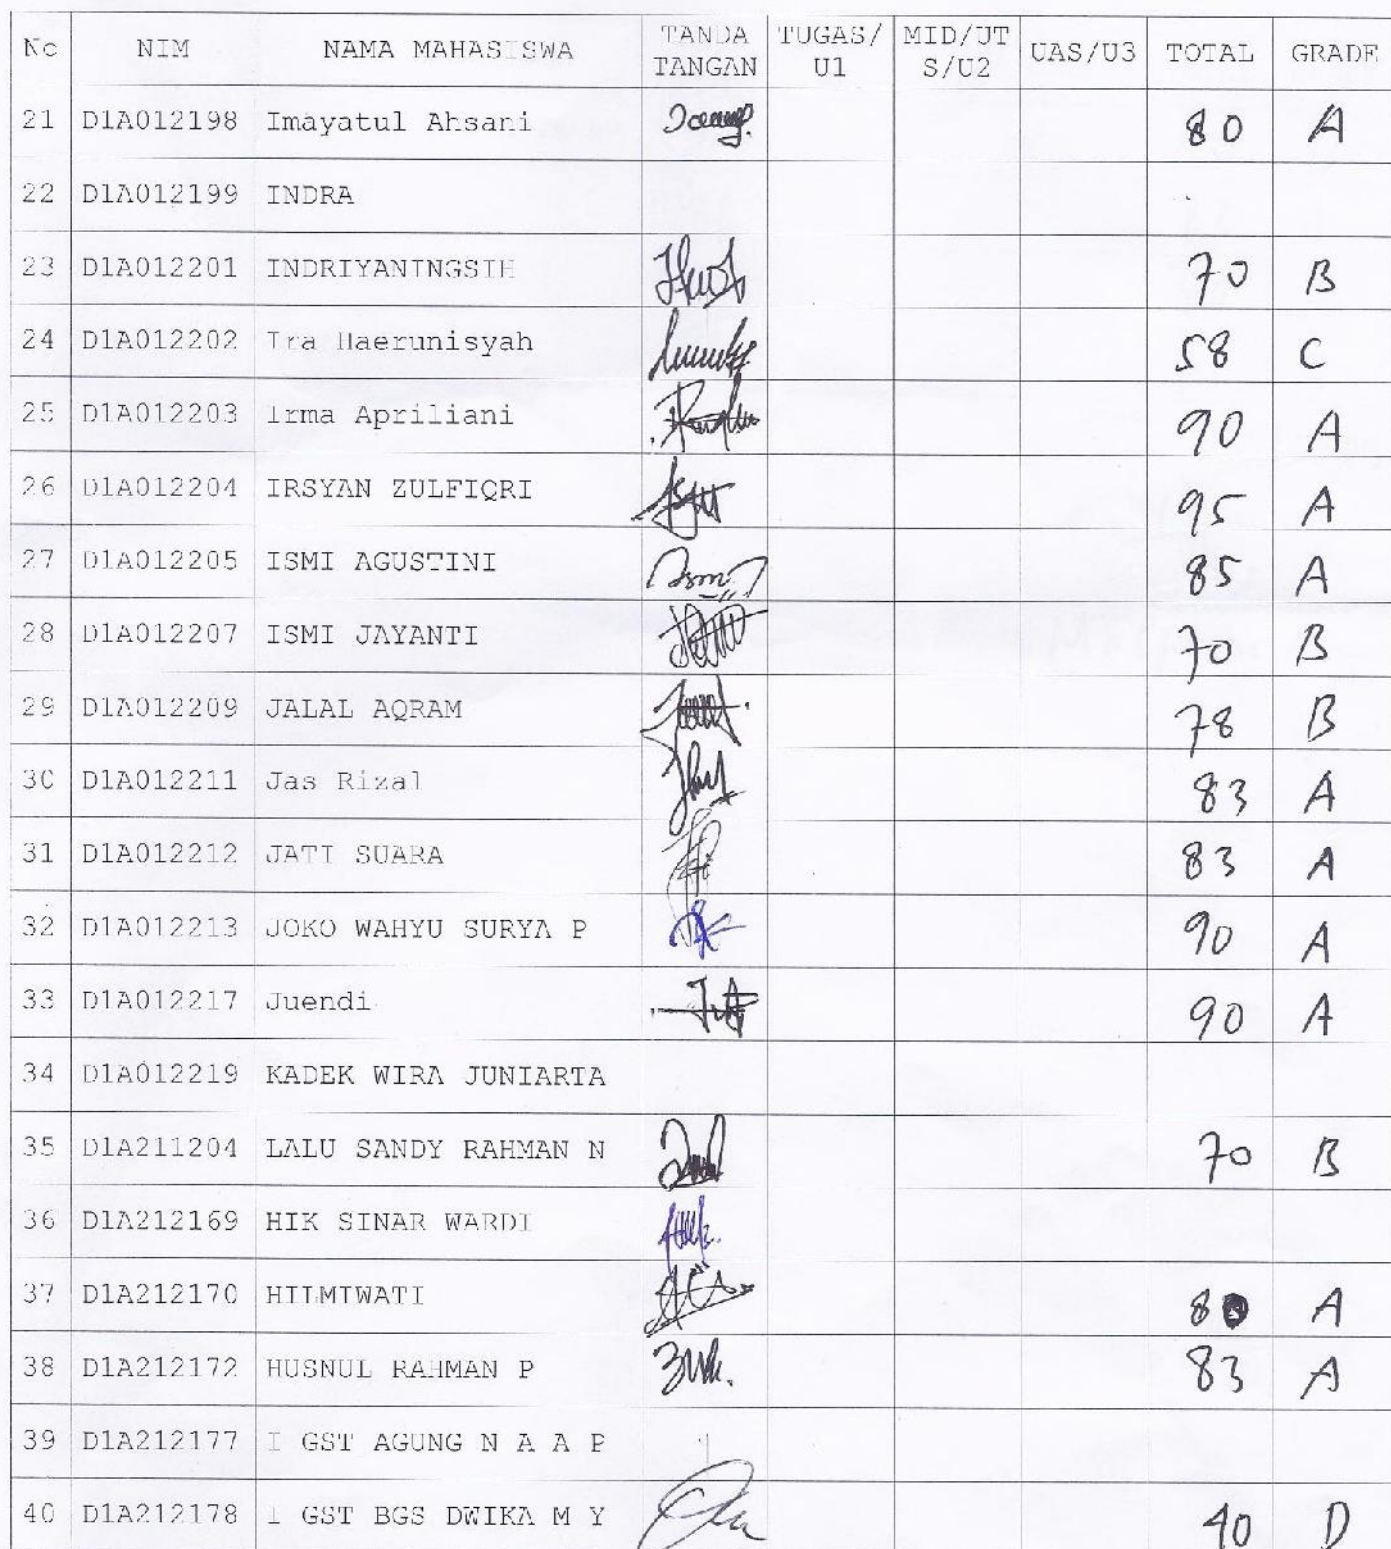 No NIM NAMA MAHASISWA TANDA TANGAN TUGAS/U1 MID/UTS/U2 UAS/U3 TOTAL GRADE
21 D1A012198 Imayatul Ahsani 80 A
22 D1A012199 INDRA
23 D1A012201 INDRIYANINGSIH 70 B
24 D1A012202 Ira Haerunisyah 58 C
25 D1A012203 Irma Apriliani 90 A
26 D1A012204 IRSYAN ZULFIQRI 95 A
27 D1A012205 ISMI AGUSTINI 85 A
28 D1A012207 ISMI JAYANTI 70 B
29 D1A012209 JALAL AQRAM 78 B
30 D1A012211 Jas Rizal 83 A
31 D1A012212 JATI SUARA 83 A
32 D1A012213 JOKO WAHYU SURYA P 90 A
33 D1A012217 Juendi 90 A
34 D1A012219 KADEK WIRA JUNIARTA
35 D1A211204 LALU SANDY RAHMAN N 70 B
36 D1A212169 HIK SINAR WARDI
37 D1A212170 HILMIWATI 80 A
38 D1A212172 HUSNUL RAHMAN P 83 A
39 D1A212177 I GST AGUNG N A A P
40 D1A212178 I GST BGS DWIKA M Y 40 D